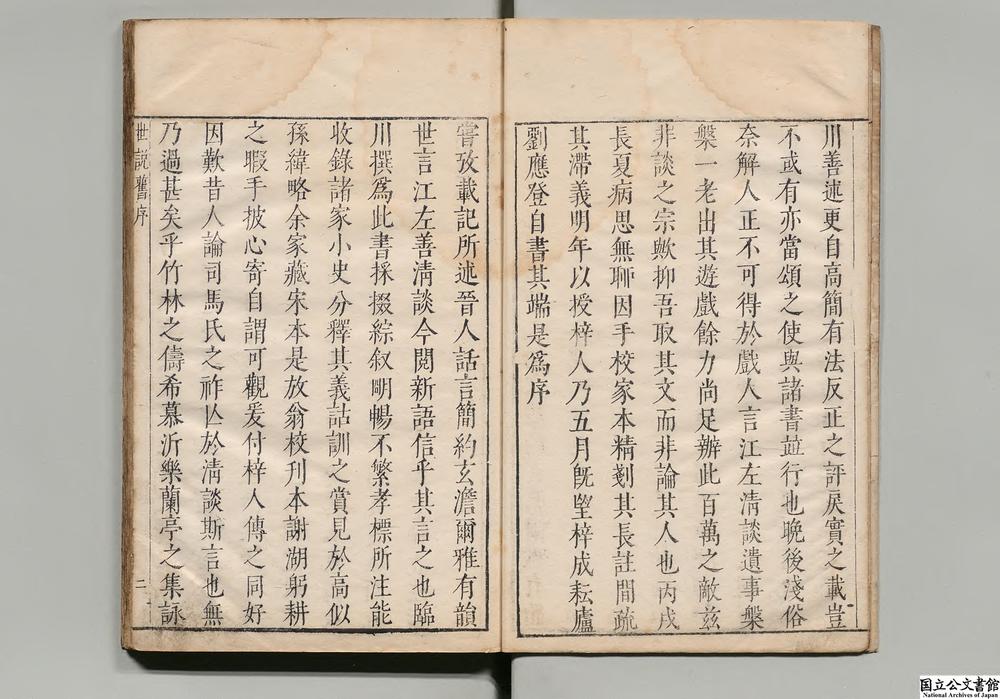 川善述更自高簡有法反正之評戾實之載豈
不或有亦當頌之使與諸書並行也晚後淺俗
奈解人正不可得於戲人言江左清談遺事槃
槃一老出其遊戲餘力尚足辦此百萬之敵茲
非談之宗歟抑吾取其文而非論其人也丙戌
長夏病思無聊因手校家本精剗其長註間疏
其滯義明年以授梓人乃五月既望梓成耘廬
劉應登自書其端是爲序
嘗攷載記所述晉人話言簡約玄澹爾雅有韻
世言江左善清談今閱新語信乎其言之也臨
川撰爲此書採掇綜叙明暢不繁孝標所注能
收錄諸家小史分釋其義詁訓之賞見於高似
孫緯略余家藏宋本是放翁校刊本謝湖躬耕
之暇手披心寄自謂可觀爰付梓人傳之同好
因歎昔人論司馬氏之祚亾於清談斯言也無
乃過甚矣乎竹林之儔希慕沂樂蘭亭之集詠
世說舊序
二
国立公文書館
National Archives of Japan